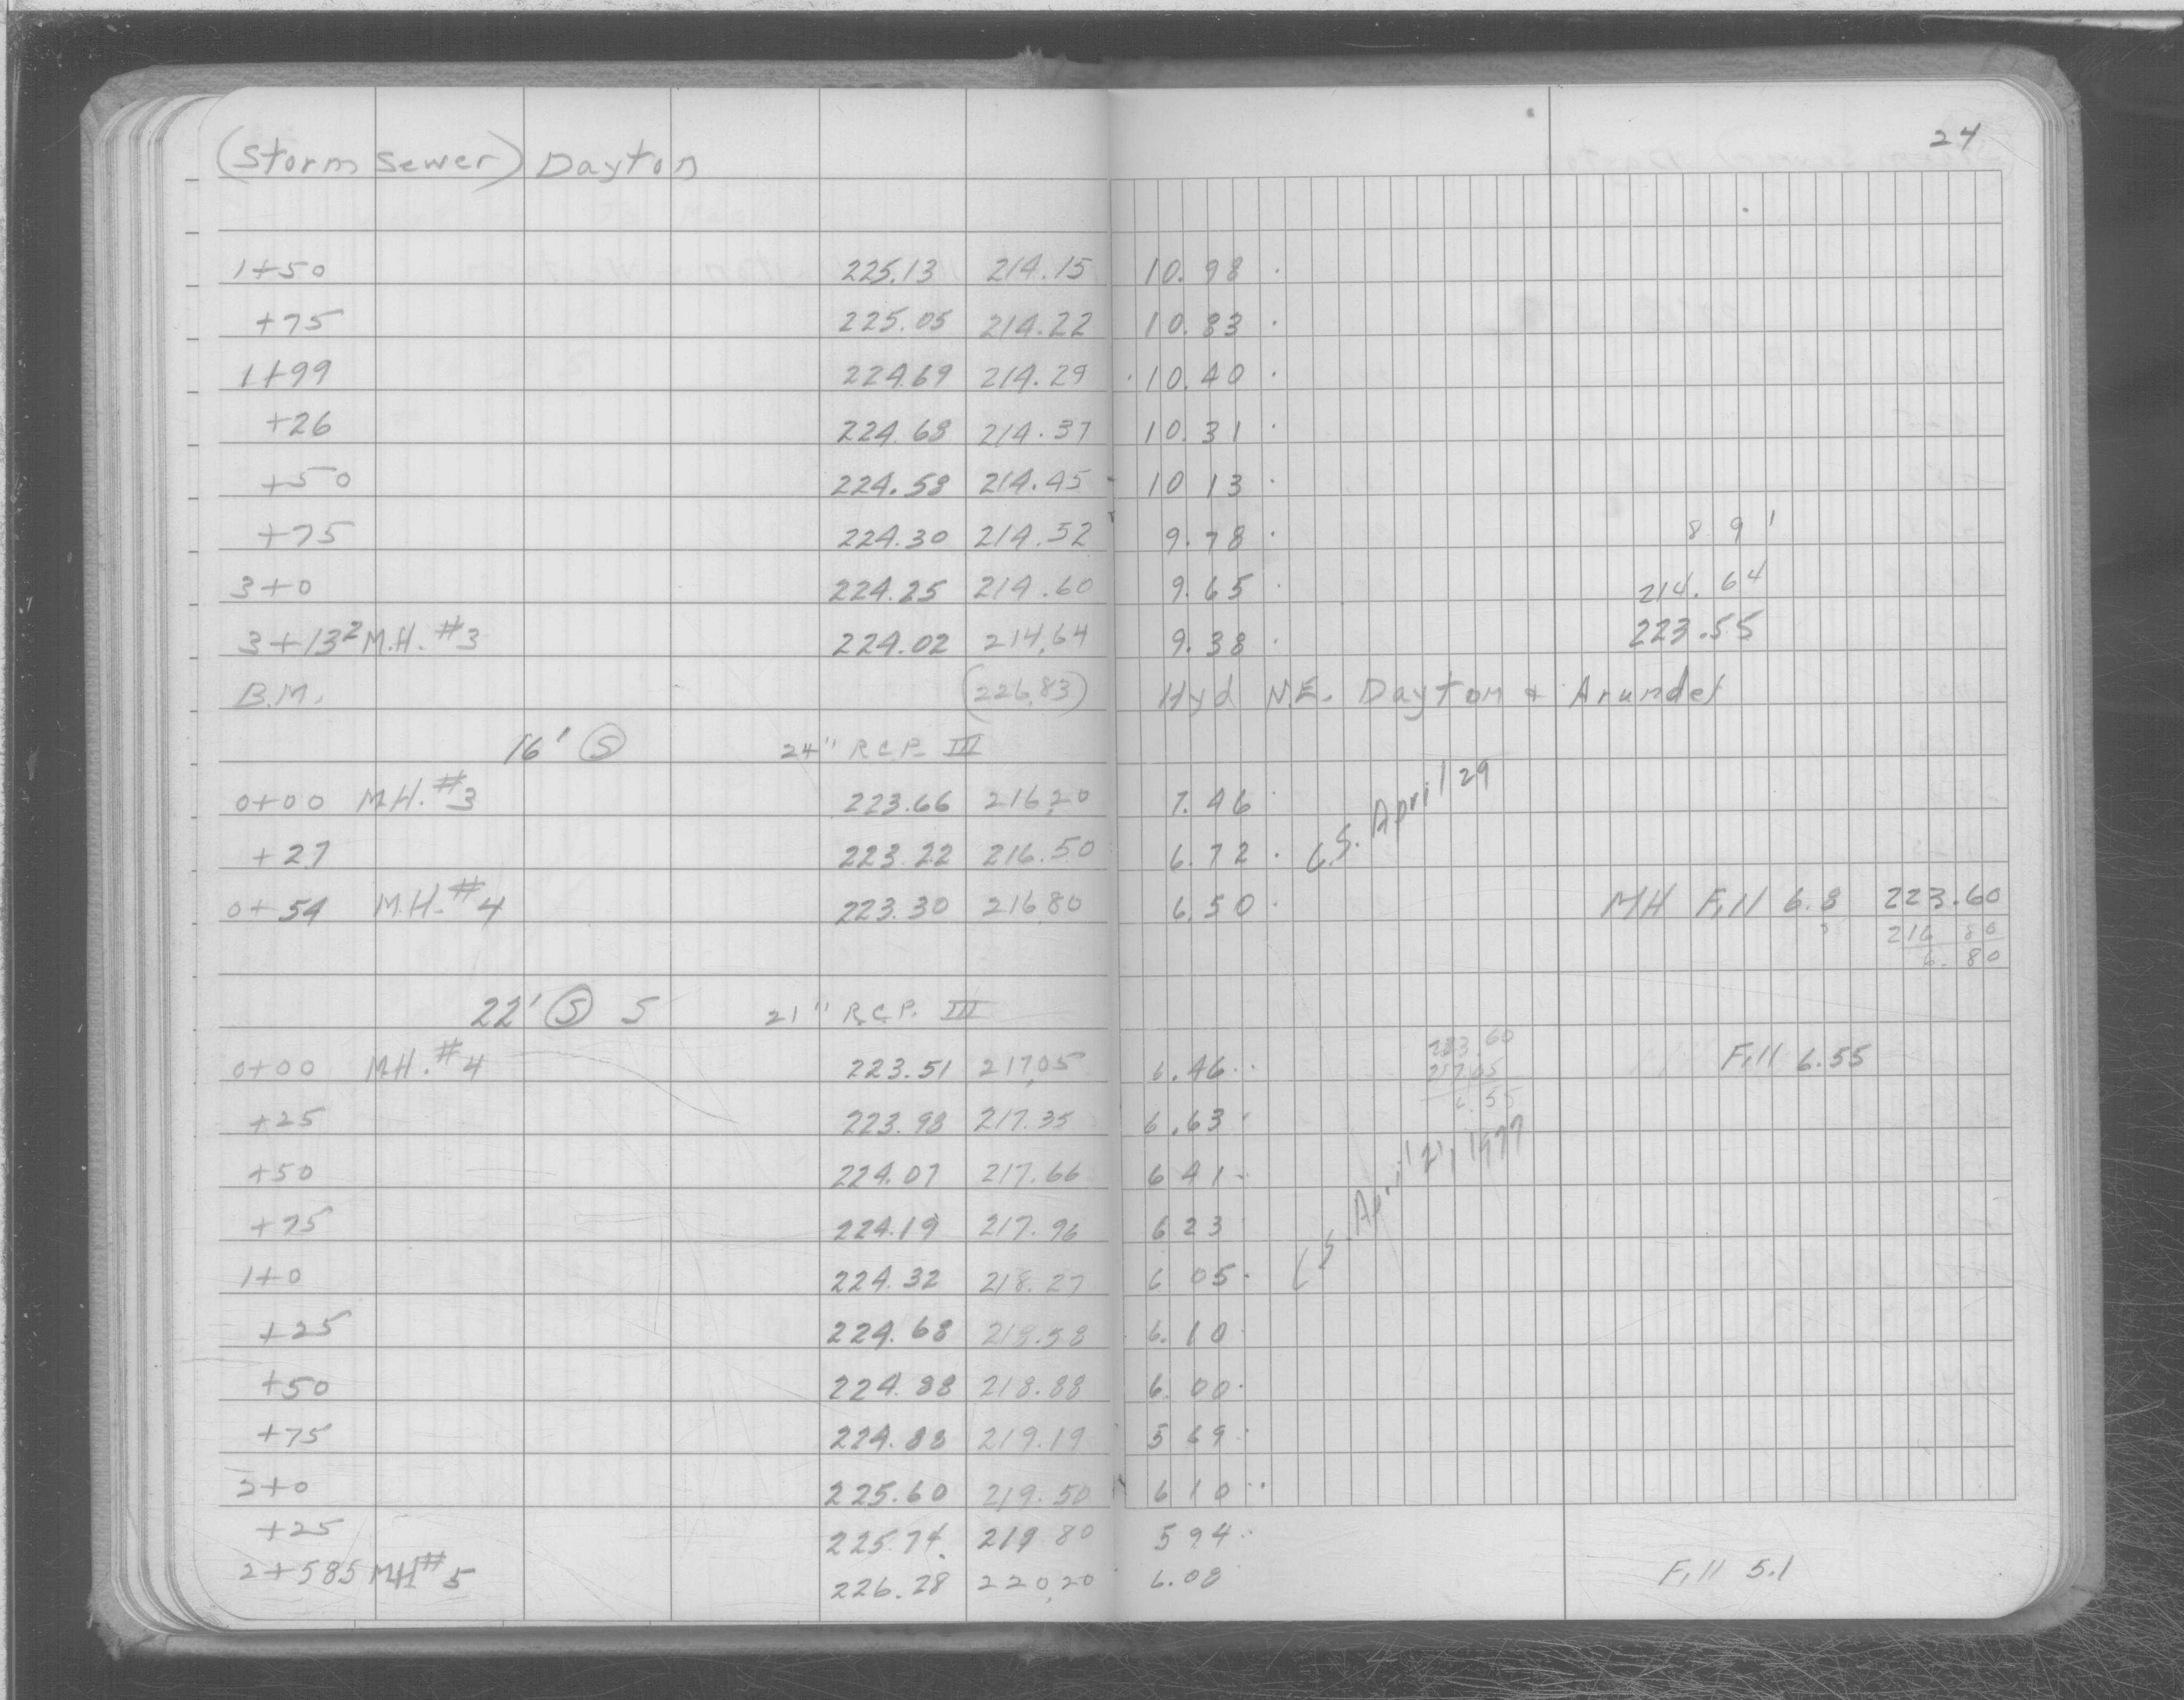 24
(Storm Sewer) Dayton
1+50 225.13 214.15 10.98
+75 225.05 214.22 10.83
1+99 224.69 214.29 10.40
+26 224.68 214.37 10.31
+50 224.58 214.45 10 13
+75 224.30 214.52 9.78 8.9'
3+0 224.25 214.60 9.65 214.64
3+13² M.H. #3 224.02 214.64 9.38 223.55
B.M. (226.83) Hyd N.E. Dayton & Arundel
16' Ⓢ 24" R.C.P. III
0+00 M.H. #3 223.66 216.20 7.46
+27 223.22 216.50 6.72 C.S. April 29
0+54 M.H. #4 223.30 216.80 6.50 MH Fill 6.8 223.60
216 80
6.80
22' Ⓢ S 21" R.C.P. III
0+00 M.H. #4 223.51 217.05 6.46 223.60 Fill 6.55
217.05
6.55
+25 223.98 217.35 6.63
+50 224.07 217.66 6 41
+75 224.19 217.96 6 23 April 1977
1+0 224.32 218.27 6 05
+25 224.68 218.58 6.10
+50 224.88 218.88 6.00
+75 224.88 219.19 5 69
2+0 225.60 219.50 6 10
+25 225.74 219 80 5 94
2+585 MH #5 226.28 220.20 6.08 Fill 5.1